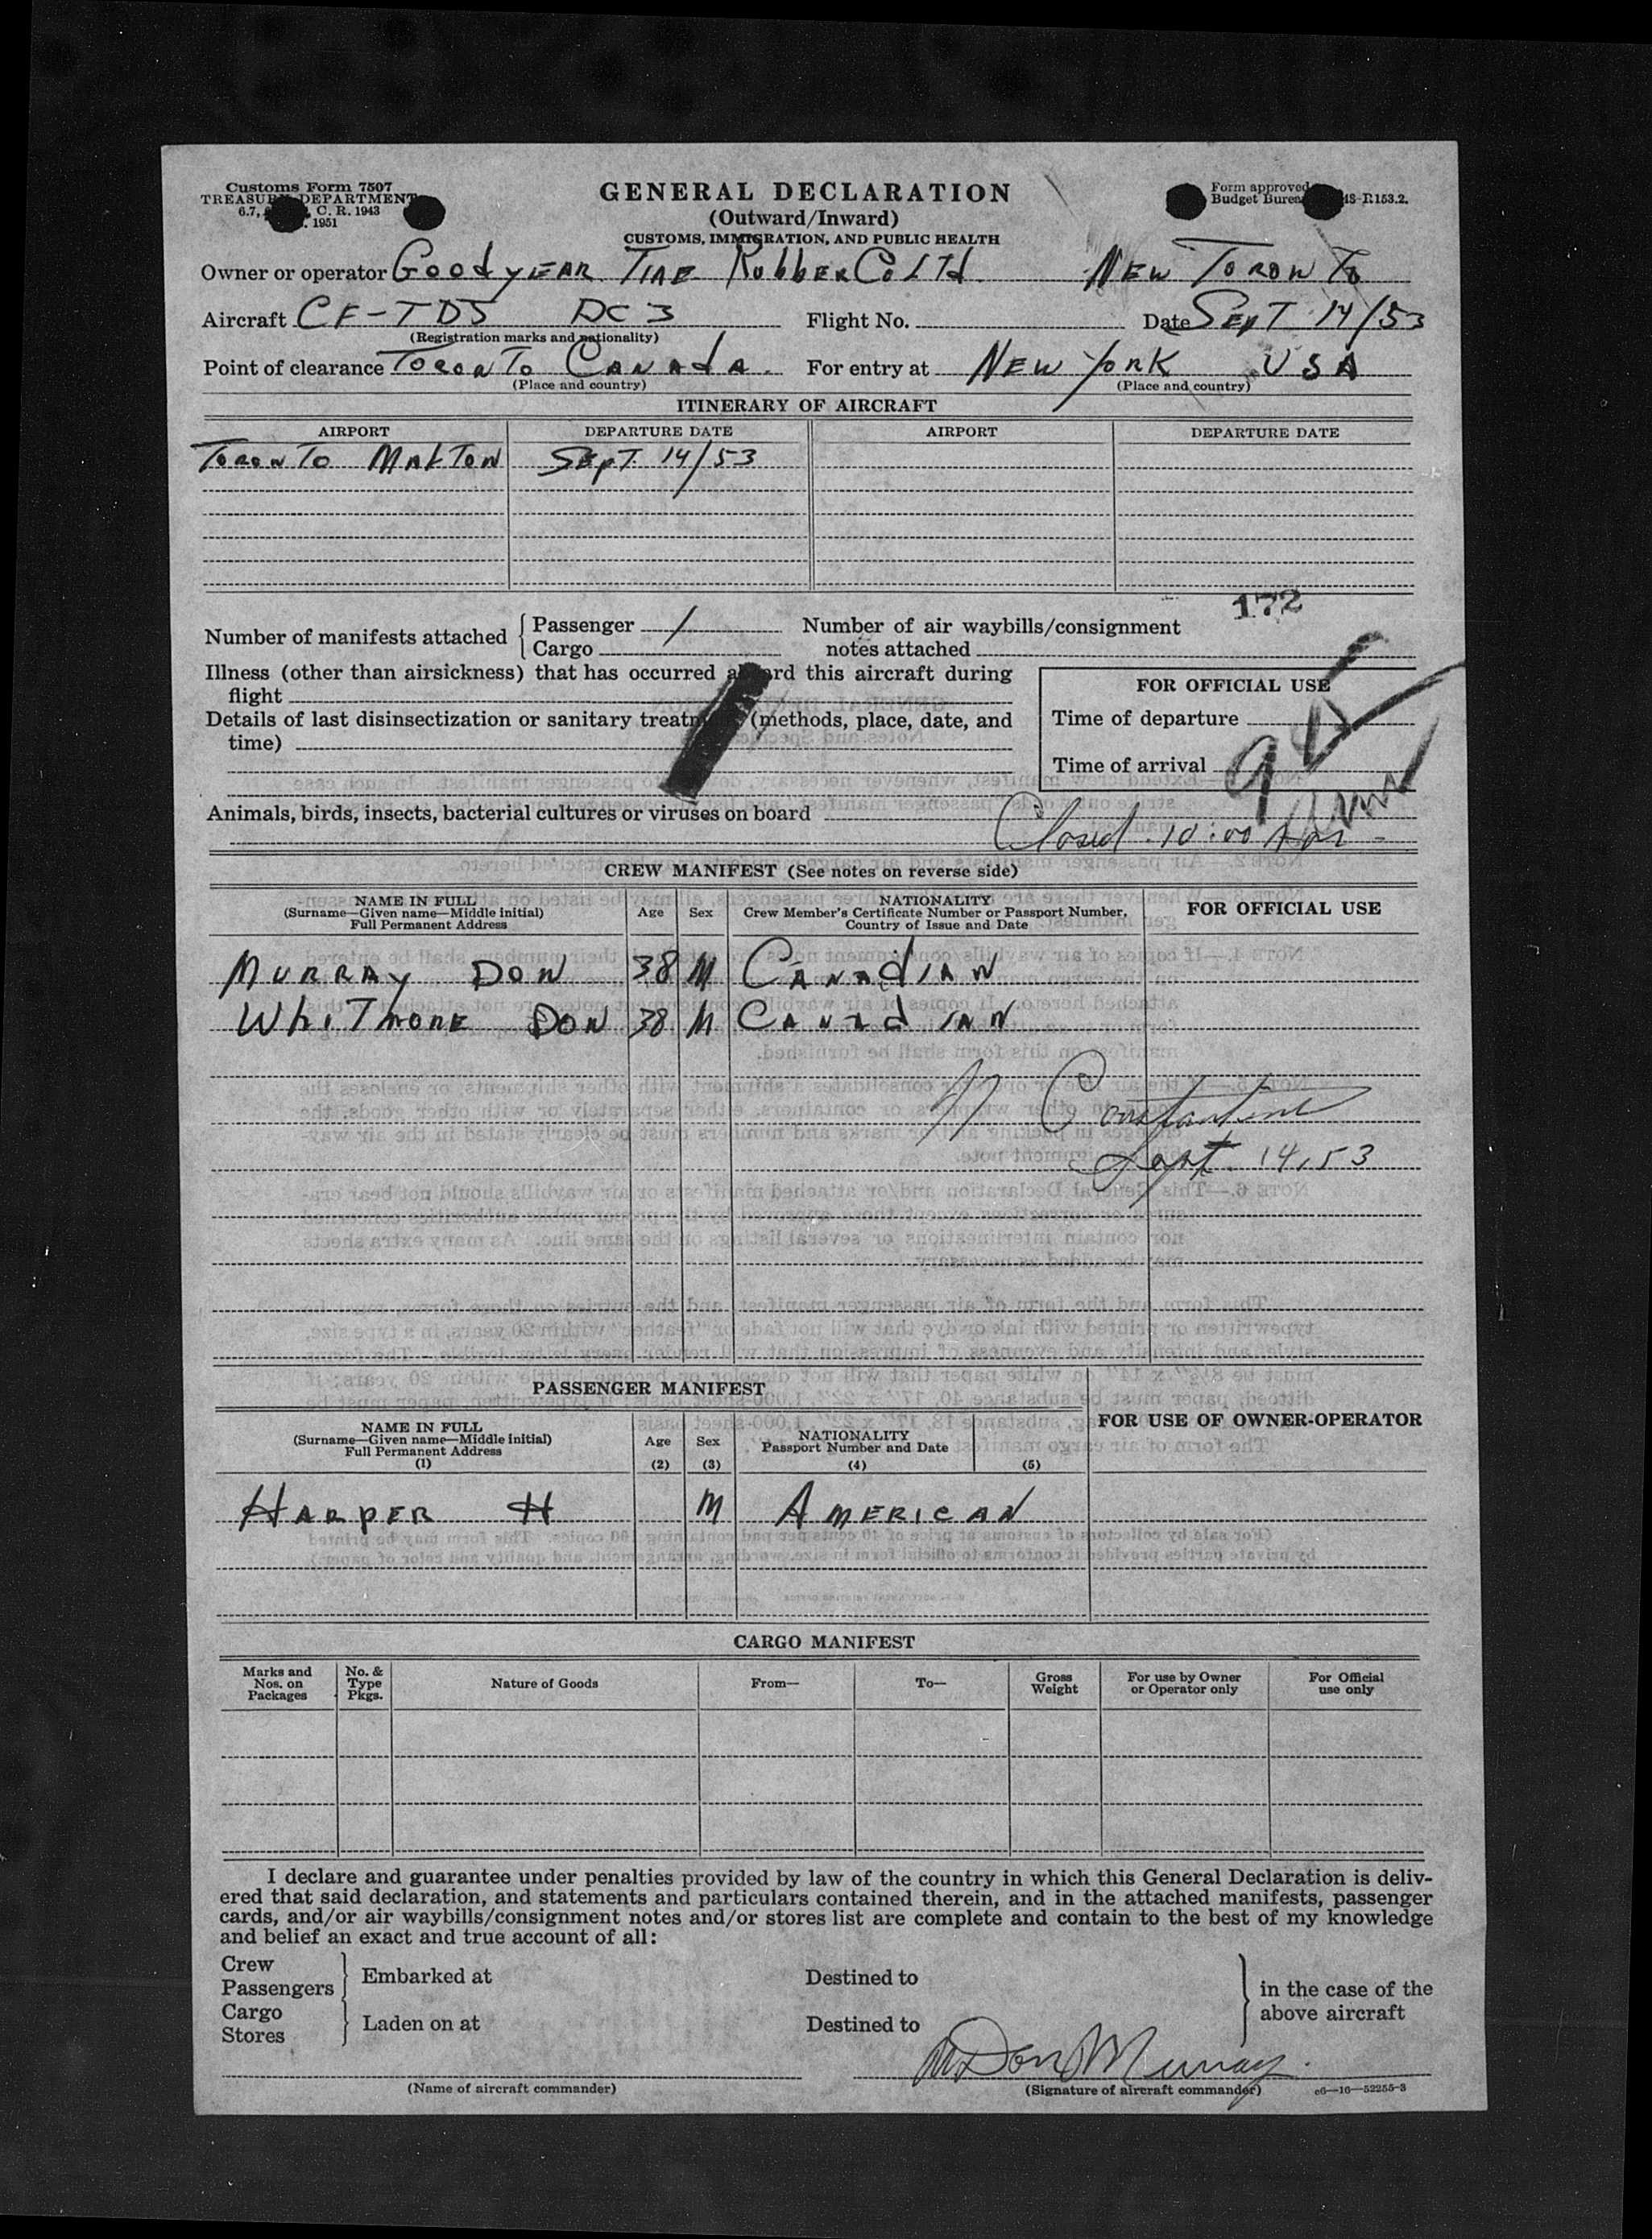 Customs Form 7507
TREASURY DEPARTMENT
6.7, C. R. 1943
1951
GENERAL DECLARATION
(Outward/Inward)
CUSTOMS, IMMIGRATION, AND PUBLIC HEALTH
Form approved
Budget Bureau R153.2.
Owner or operator Goodyear Tire Rubber Co Ltd. New Toronto
Aircraft CF-TDJ DC3 Flight No. Date Sept 14/53
(Registration marks and nationality)
Point of clearance Toronto Canada. For entry at New York USA
(Place and country) (Place and country)
ITINERARY OF AIRCRAFT
AIRPORT DEPARTURE DATE AIRPORT DEPARTURE DATE
Toronto Malton Sept. 14/53
172
Number of manifests attached { Passenger 1 Number of air waybills/consignment
Cargo notes attached
Illness (other than airsickness) that has occurred aboard this aircraft during
flight
Details of last disinsectization or sanitary treatment (methods, place, date, and
time)
FOR OFFICIAL USE
Time of departure
Time of arrival 945
Animals, birds, insects, bacterial cultures or viruses on board
Closed 10:00 Am
CREW MANIFEST (See notes on reverse side)
NAME IN FULL
(Surname—Given name—Middle initial)
Full Permanent Address
Age Sex
NATIONALITY
Crew Member's Certificate Number or Passport Number,
Country of Issue and Date
FOR OFFICIAL USE
Murray Don 38 M Canadian
Whitmore Don 38 M Canadian
N Constantine
Sept. 14, 53
PASSENGER MANIFEST
NAME IN FULL
(Surname—Given name—Middle initial)
Full Permanent Address
(1)
Age
(2)
Sex
(3)
NATIONALITY
Passport Number and Date
(4) (5)
FOR USE OF OWNER-OPERATOR
Harper H M American
CARGO MANIFEST
Marks and
Nos. on
Packages
No. &
Type
Pkgs.
Nature of Goods
From—
To—
Gross
Weight
For use by Owner
or Operator only
For Official
use only
I declare and guarantee under penalties provided by law of the country in which this General Declaration is deliv-
ered that said declaration, and statements and particulars contained therein, and in the attached manifests, passenger
cards, and/or air waybills/consignment notes and/or stores list are complete and contain to the best of my knowledge
and belief an exact and true account of all:
Crew
Passengers
Embarked at Destined to
Cargo
Stores
Laden on at Destined to
in the case of the
above aircraft
Don Murray
(Name of aircraft commander) (Signature of aircraft commander) c6—16—52255-3